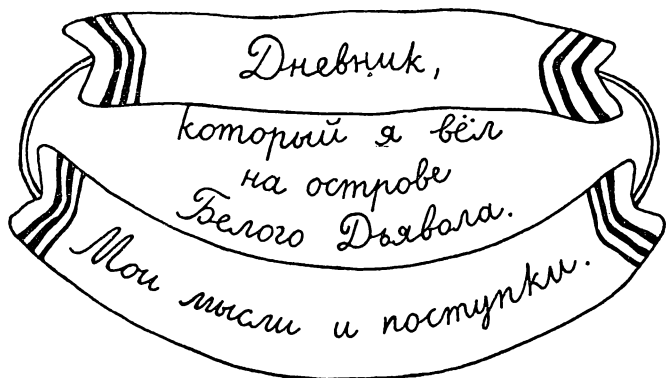 Дневник,
который я вёл
на острове
Белого Дьявола.
Мои мысли и поступки.